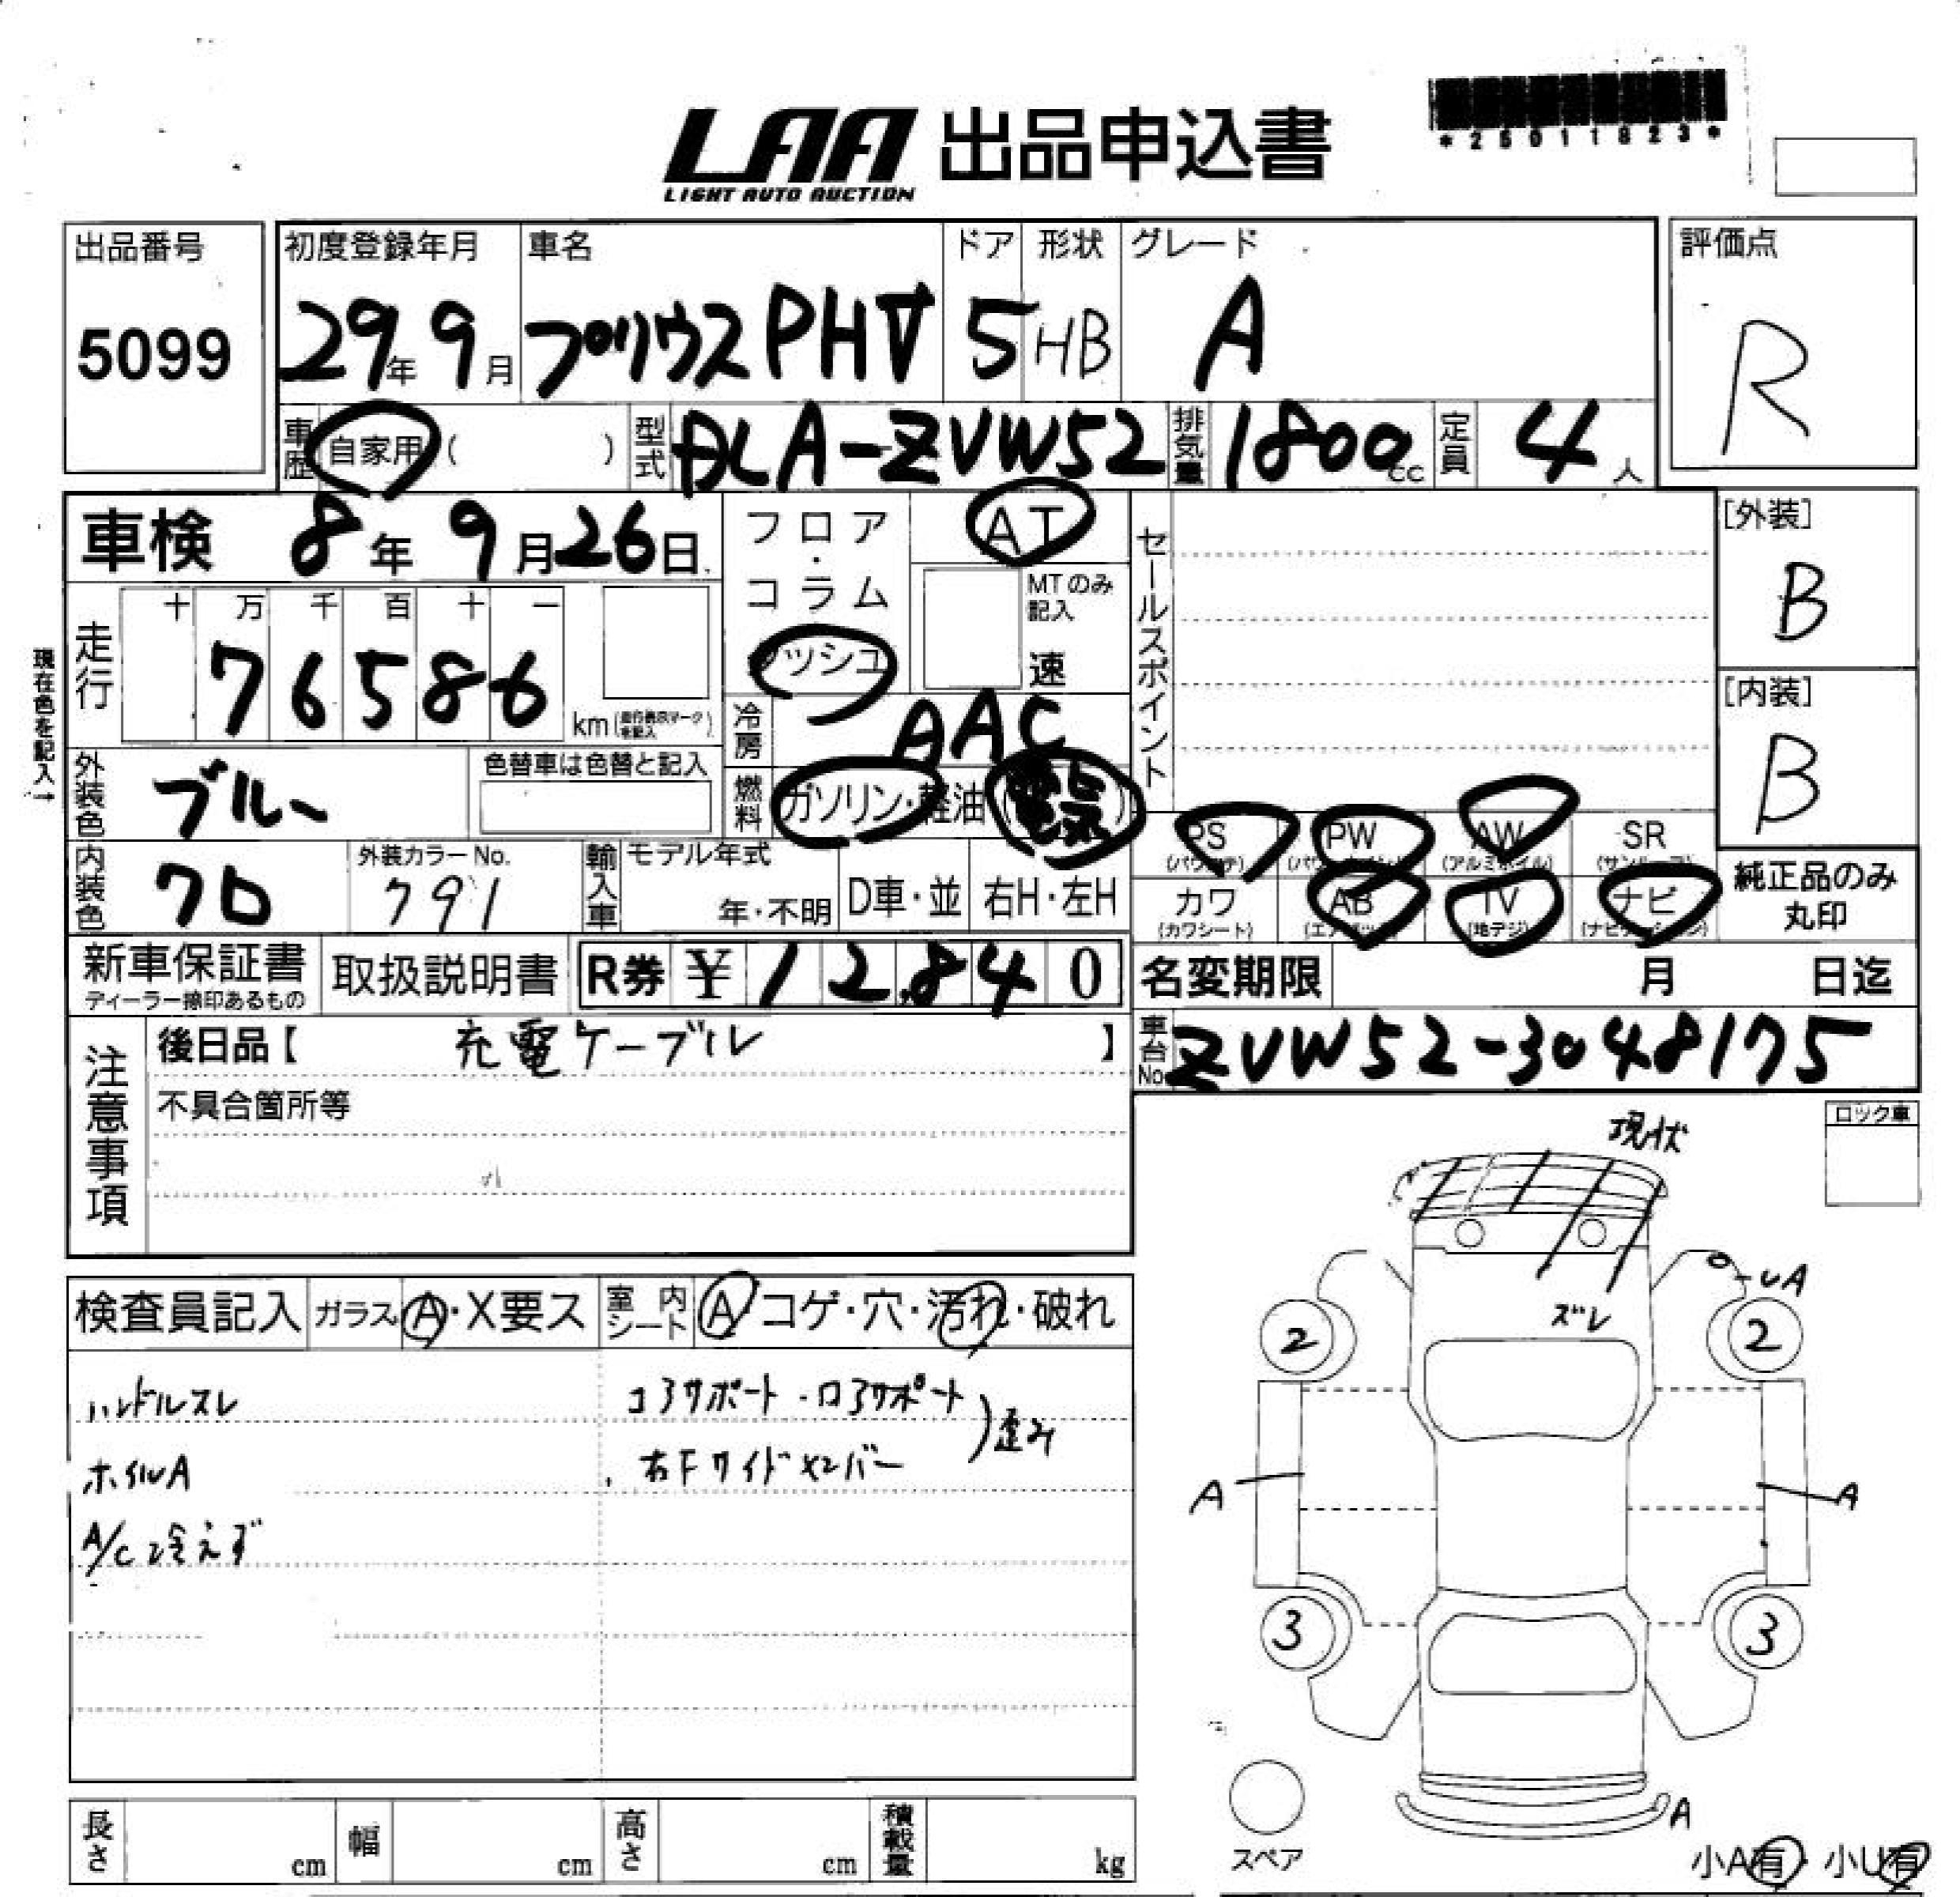 LAA 出品申込書
LIGHT AUTO AUCTION
*25011823*
出品番号
5099
初度登録年月
29年 9月
車名
プリウスPHV
ドア
5
形状
HB
グレード
A
評価点
R
車歴 自家用 ( )
型式 DLA-ZVW52
排気量 1800cc
定員 4人
車検 8年 9月 26日
フロア・コラム
ダッシュ
AT
MTのみ記入
速
セールスポイント
[外装]
B
[内装]
B
現在色を記入→
走行
十 万 千 百 十 一
76586
km(走行表示マークを記入)
冷房 AAC
外装色 ブルー
色替車は色替と記入
燃料 ガソリン・軽油(電気)
PS
AW
PW
SR
内装色 クロ
外装カラーNo.
791
輸入車
モデル年式
年・不明
D車・並
右H・左H
カワ
(カワシート)
AB
TV
(地デジ)
ナビ
純正品のみ
丸印
新車保証書
ディーラー捺印あるもの
取扱説明書
R券 ¥12840
名変期限 月 日迄
注意事項
後日品【 充電ケーブル 】
車台No. ZVW52-3048175
不具合箇所等
ロック車
現状
ズレ
U A
2
2
A
A
3
3
A
検査員記入
ガラス A・X要ス
室内シート A コゲ・穴・汚れ・破れ
ハンドルスレ
コアサポート・ロアサポート
歪み
ホイルA
右Fサイドメンバー
A/C冷えず
長さ cm
幅 cm
高さ cm
積載量 kg
スペア
小A有・小U有